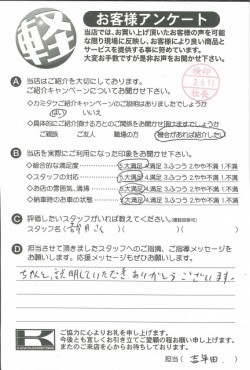 軽
お客様アンケート
当店では、お買い上げ頂いたお客様の声を可能
な限り現場に反映し、お客様により良い商品と
サービスを提供する事に努めています。
大変お手数ですが是非お声をお聞かせ下さい。
Ⓐ 当店はご紹介を大切にしております。
ご紹介キャンペーンについてお聞かせ下さい。
◇カミタケキャンペーンのご説明はありましたでしょうか
はい いいえ
◇具体的にご紹介頂ける方とのご関係をお聞かせ頂けますでしょうか
ご親族 ご友人 職場の方 機会があれば紹介したい
Ⓑ 当店を実際にご利用になった印象をお聞かせ下さい。
◇総合的な満足度 5.大満足 4.満足 3.ふつう 2.やや不満 1.不満
◇スタッフの対応 5.大満足 4.満足 3.ふつう 2.やや不満 1.不満
◇お店の雰囲気、清掃 5.大満足 4.満足 3.ふつう 2.やや不満 1.不満
◇納車時のお車の状態 5.大満足 4.満足 3.ふつう 2.やや不満 1.不満
Ⓒ 評価したいスタッフがいれば教えてください。(複数回答可)
スタッフ名
Ⓓ 担当させて頂きましたスタッフへのご指摘、ご指導メッセージを
お願いします。応援メッセージもぜひお願いします。
ちゃんと説明していただきありがとうございます。
K
ご協力に心よりお礼を申し上げます。
今後とも宜しくお引き立てご愛顧の程お願い申し上げます。
またのご来店を心からお待ちしております。
担当( 吉年田 )